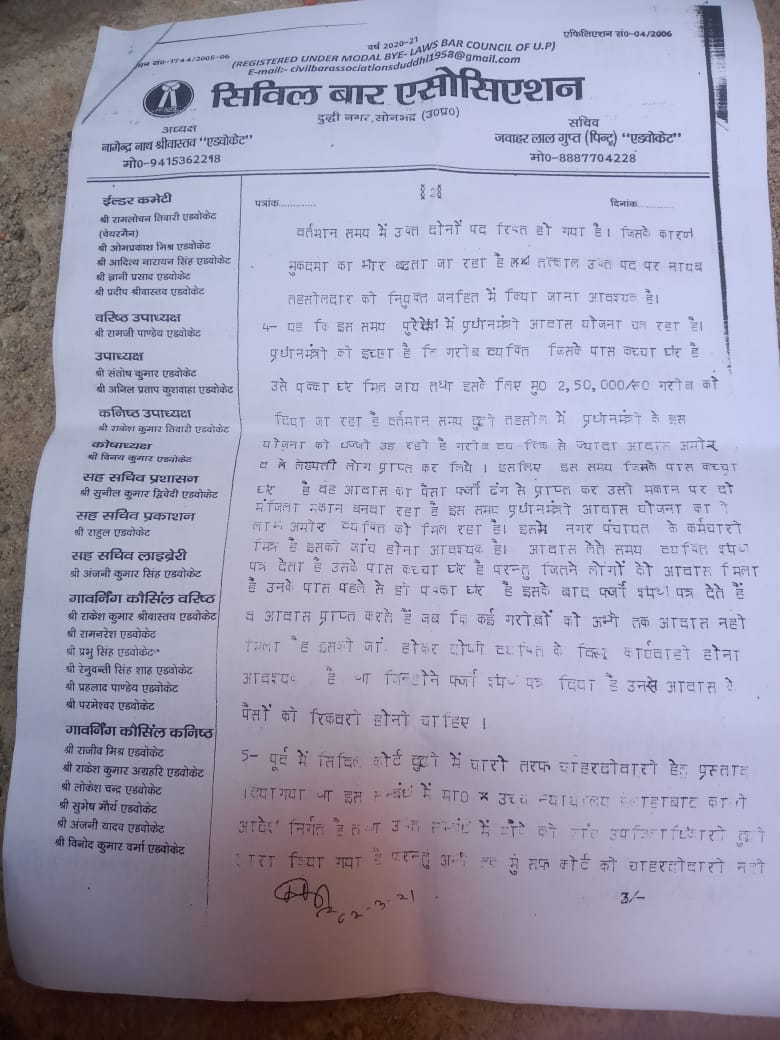 वर्ष 2020-21
एफिलिएशन सं0-04/2006
सं0-1744/2005-06
(REGISTERED UNDER MODAL BYE- LAWS BAR COUNCIL OF U.P)
E-mail:- civilbarassociationsduddhi1958@gmail.com
सिविल बार एसोसिएशन
दुद्धी नगर,सोनभद्र (उ0प्र0)
अध्यक्ष
नागेन्द्र नाथ श्रीवास्तव "एडवोकेट"
मो0-9415362218
सचिव
जवाहर लाल गुप्त (पिन्टू) "एडवोकेट"
मो0-8887704228
ईल्डर कमेटी
श्री रामलोचन तिवारी एडवोकेट
(चेयरमैन)
श्री ओमप्रकाश मिश्र एडवोकेट
श्री आदित्य नारायन सिंह एडवोकेट
श्री ज्ञानी प्रसाद एवोकेट
श्री प्रदीप श्रीवास्तव एडवोकेट
वरिष्ठ उपाध्यक्ष
श्री रामजी पाण्डेय एडवोकेट
उपाध्यक्ष
श्री संतोष कुमार एडवोकेट
श्री अनिल प्रताप कुशवाहा एडवोकेट
कनिष्ठ उपाध्यक्ष
श्री राकेश कुमार तिवारी एडवोकेट
कोषाध्यक्ष
श्री विनय कुमार एडवोकेट
सह सचिव प्रशासन
श्री सुनील कुमार द्विवेदी एडवोकेट
सह सचिव प्रकाशन
श्री राहुल एडवोकेट
सह सचिव लाइब्रेरी
श्री अंजनी कुमार सिंह एडवोकेट
गावर्निंग कौसिंल वरिष्ठ
श्री राकेश कुमार श्रीवास्तव एडवोकेट
श्री रामनरेश एडवोकेट
श्री प्रभु सिंह एडवोकेट
श्री रेनुवन्ती सिंह शाह एडवोकेट
श्री प्रहलाद पाण्डेय एडवोकेट
श्री परमेश्वर एडवोकेट
गावर्निंग कौसिंल कनिष्ठ
श्री राजीव मिश्र एडवोकेट
श्री राकेश कुमार अग्रहरि एडवोकेट
श्री लोकेश चन्द्र एडवोकेट
श्री सुमेष मौर्य एडवोकेट
श्री अंजनी यादव एडवोकेट
श्री विनोद कुमार वर्मा एडवोकेट
पत्रांक............
2
दिनांक............
वर्तमान समय में उक्त दोनों पद रिक्त हो गया है। जिसके कारण
मुकदमा का भार बढता जा रहा है तत्काल उक्त पद पर नायब
तहसीलदार की नियुक्त जनहित में किया जाना आवश्यक है।
4- यह कि इस समय पुरे देश में प्रधानमन्त्री आवास योजना चल रहा है।
प्रधानमन्त्री की इच्छा है कि गरीब व्यक्ति जिसके पास कच्चा घर है
उसे पक्का घर मिल जाय तथा इसके लिए मु0 2,50,000/रू0 गरीब को
दिया जा रहा है वर्तमान समय दुद्धी तहसील में प्रधानमन्त्री के इस
योजना की धज्जी उड रही है गरीब व्यक्ति से ज्यादा आवास अमीर
व लखपती लोग प्राप्त कर लिये । इसलिए इस समय जिसके पास कच्चा
घर है वह आवास का पैसा फर्जी ढंग से प्राप्त कर उसी मकान पर दो
मंजिला मकान बनवा रहा है इस समय प्रधानमन्त्री आवास योजना का
लाभ अमीर व्यक्ति को मिल रहा है। इसमे नगर पंचायत के कर्मचारी
है इसकी जांच होना आवश्यक है। आवास लेते समय व्यक्ति शपथ
पत्र देता है उसके पास कच्चा घर है परन्तु जितने लोगों को आवास मिला
है उनके पास पहले से ही पक्का घर है इसके बाद फर्जी शपथ पत्र देते हैं
व आवास प्राप्त करते हैं जब कि कई गरीबों को अभी तक आवास नही
मिला है इसकी होकर दोषी व्यक्ति के विरूद्ध कार्यवाही होना
आवश्यक है जिन्होने फर्जी शपथ पत्र दिया है उनसे आवास के
पैसों की रिकवरी होनी चाहिए ।
5- पूर्व में सिविल कोर्ट दुद्धी में चारो तरफ चाहरदीवारी हेतु प्रस्ताव
किया गया था इस सम्बंध में मा0 उच्च न्यायालय इलाहाबाद का भी
आदेश निर्गत है तथा उक्त सम्बंध में मौके की जांच उपजिलाधिकारी दुद्धी
द्वारा किया गया है परन्तु अभी तक मुंसफ कोर्ट की चाहरदीवारी नही
02.3.21
3/-